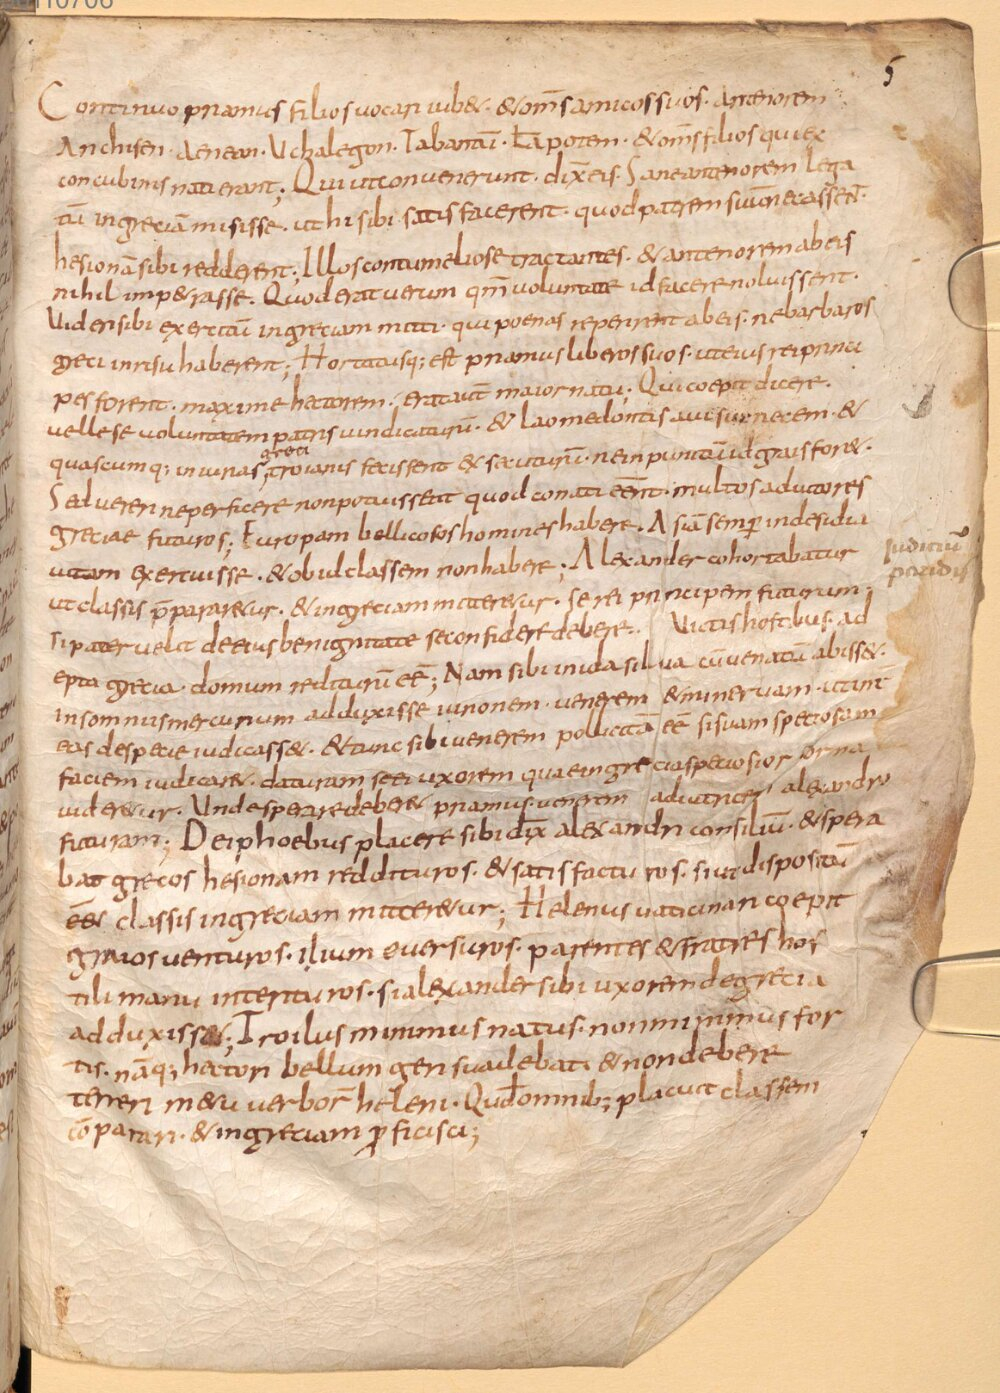 5
Continuo priamus filios uocari iub&. &om̅s amicos suos. Antenorem
Anchisen. Aenean. Uchalegon. Tabantau̅. La̅potem. &om̅s filios qui ex
concubinis nati erant; Qui ut conuenerunt. dix̅ eis. Se antenorem lega
tu̅ in grecia̅ misisse. ut hi sibi satis facerent. quod patrem suu̅ necassent.
hesiona̅ sibi redderent; Illos contumeliose tractantes. & antenorem ab eis
nihil imp&rasse. Quod erat uerum qm̅ uoluntate id facere noluissent.
Uideri sibi exercitu̅ in greciam mitti. qui poenas repeterent ab eis. ne barbaros
greci inrisu haberent; Hortatusq; est priamus liberos suos. ut eius rei princi
pes forent. maxime hectorem. erat aut̅ maior natu. Qui coepit dicere.
uelle se uoluntatem patris uindicaturu̅. & laomedontis aui sui necem. &
quascumq; iniurias greci troianis fecissent & secuturu̅. ne inpunitu̅ id grais for&.
Sed uereri ne perficere non potuissent quod conati eent. multos adiutores
greciae futuros; Europam bellicosos homines habere. Asia̅ semp̅ in desidia
uitam exercuisse. & ob id classem non habere; Alexander cohortabatur
ut classis p̅parar&ur. & in greciam mitter&ur. se rei principem futurum
iudiciu̅
paridis
si pater uelit de eius benignitate se confidere debere. Uictis hostibus. ad
epta grecia. domum rediturū ee̅; Nam sibi in ida silua cu̅ uenatu̅ abiss&.
in somnis mercurium adduxisse iunonem. uenerem & mineruam. ut int̅
eas de specie iudicass&. & tunc sibi uenerem pollicita̅ ee̅ si suam speciosam
faciem iudicar&. daturam se ei uxorem quae in grecia speciosior forma
uider&ur. Unde sperare deber& priamus uenerem adiutricem alexandro
futuram; Deiphoebus placere sibi dix̅ alexandri consiliu̅. & spera
bat grecos hesionam reddituros. & satis facturos. si ut dispositu̅
ee& classis in greciam mitter&ur; Helenus uaticinari coepit
graios uenturos. ilium euersuros. parentes & fratres hos
tili manu interituros. si alexander sibi uxorem de grecia
adduxiss&; Troilus minimus natus. non minimus for
tis. na̅q; hectori bellum geri suadebat. & non debere
terreri m&u uerbor̅ heleni. Quod omnib; placuit classem
co̅parari. & in greciam p̅ficisci;